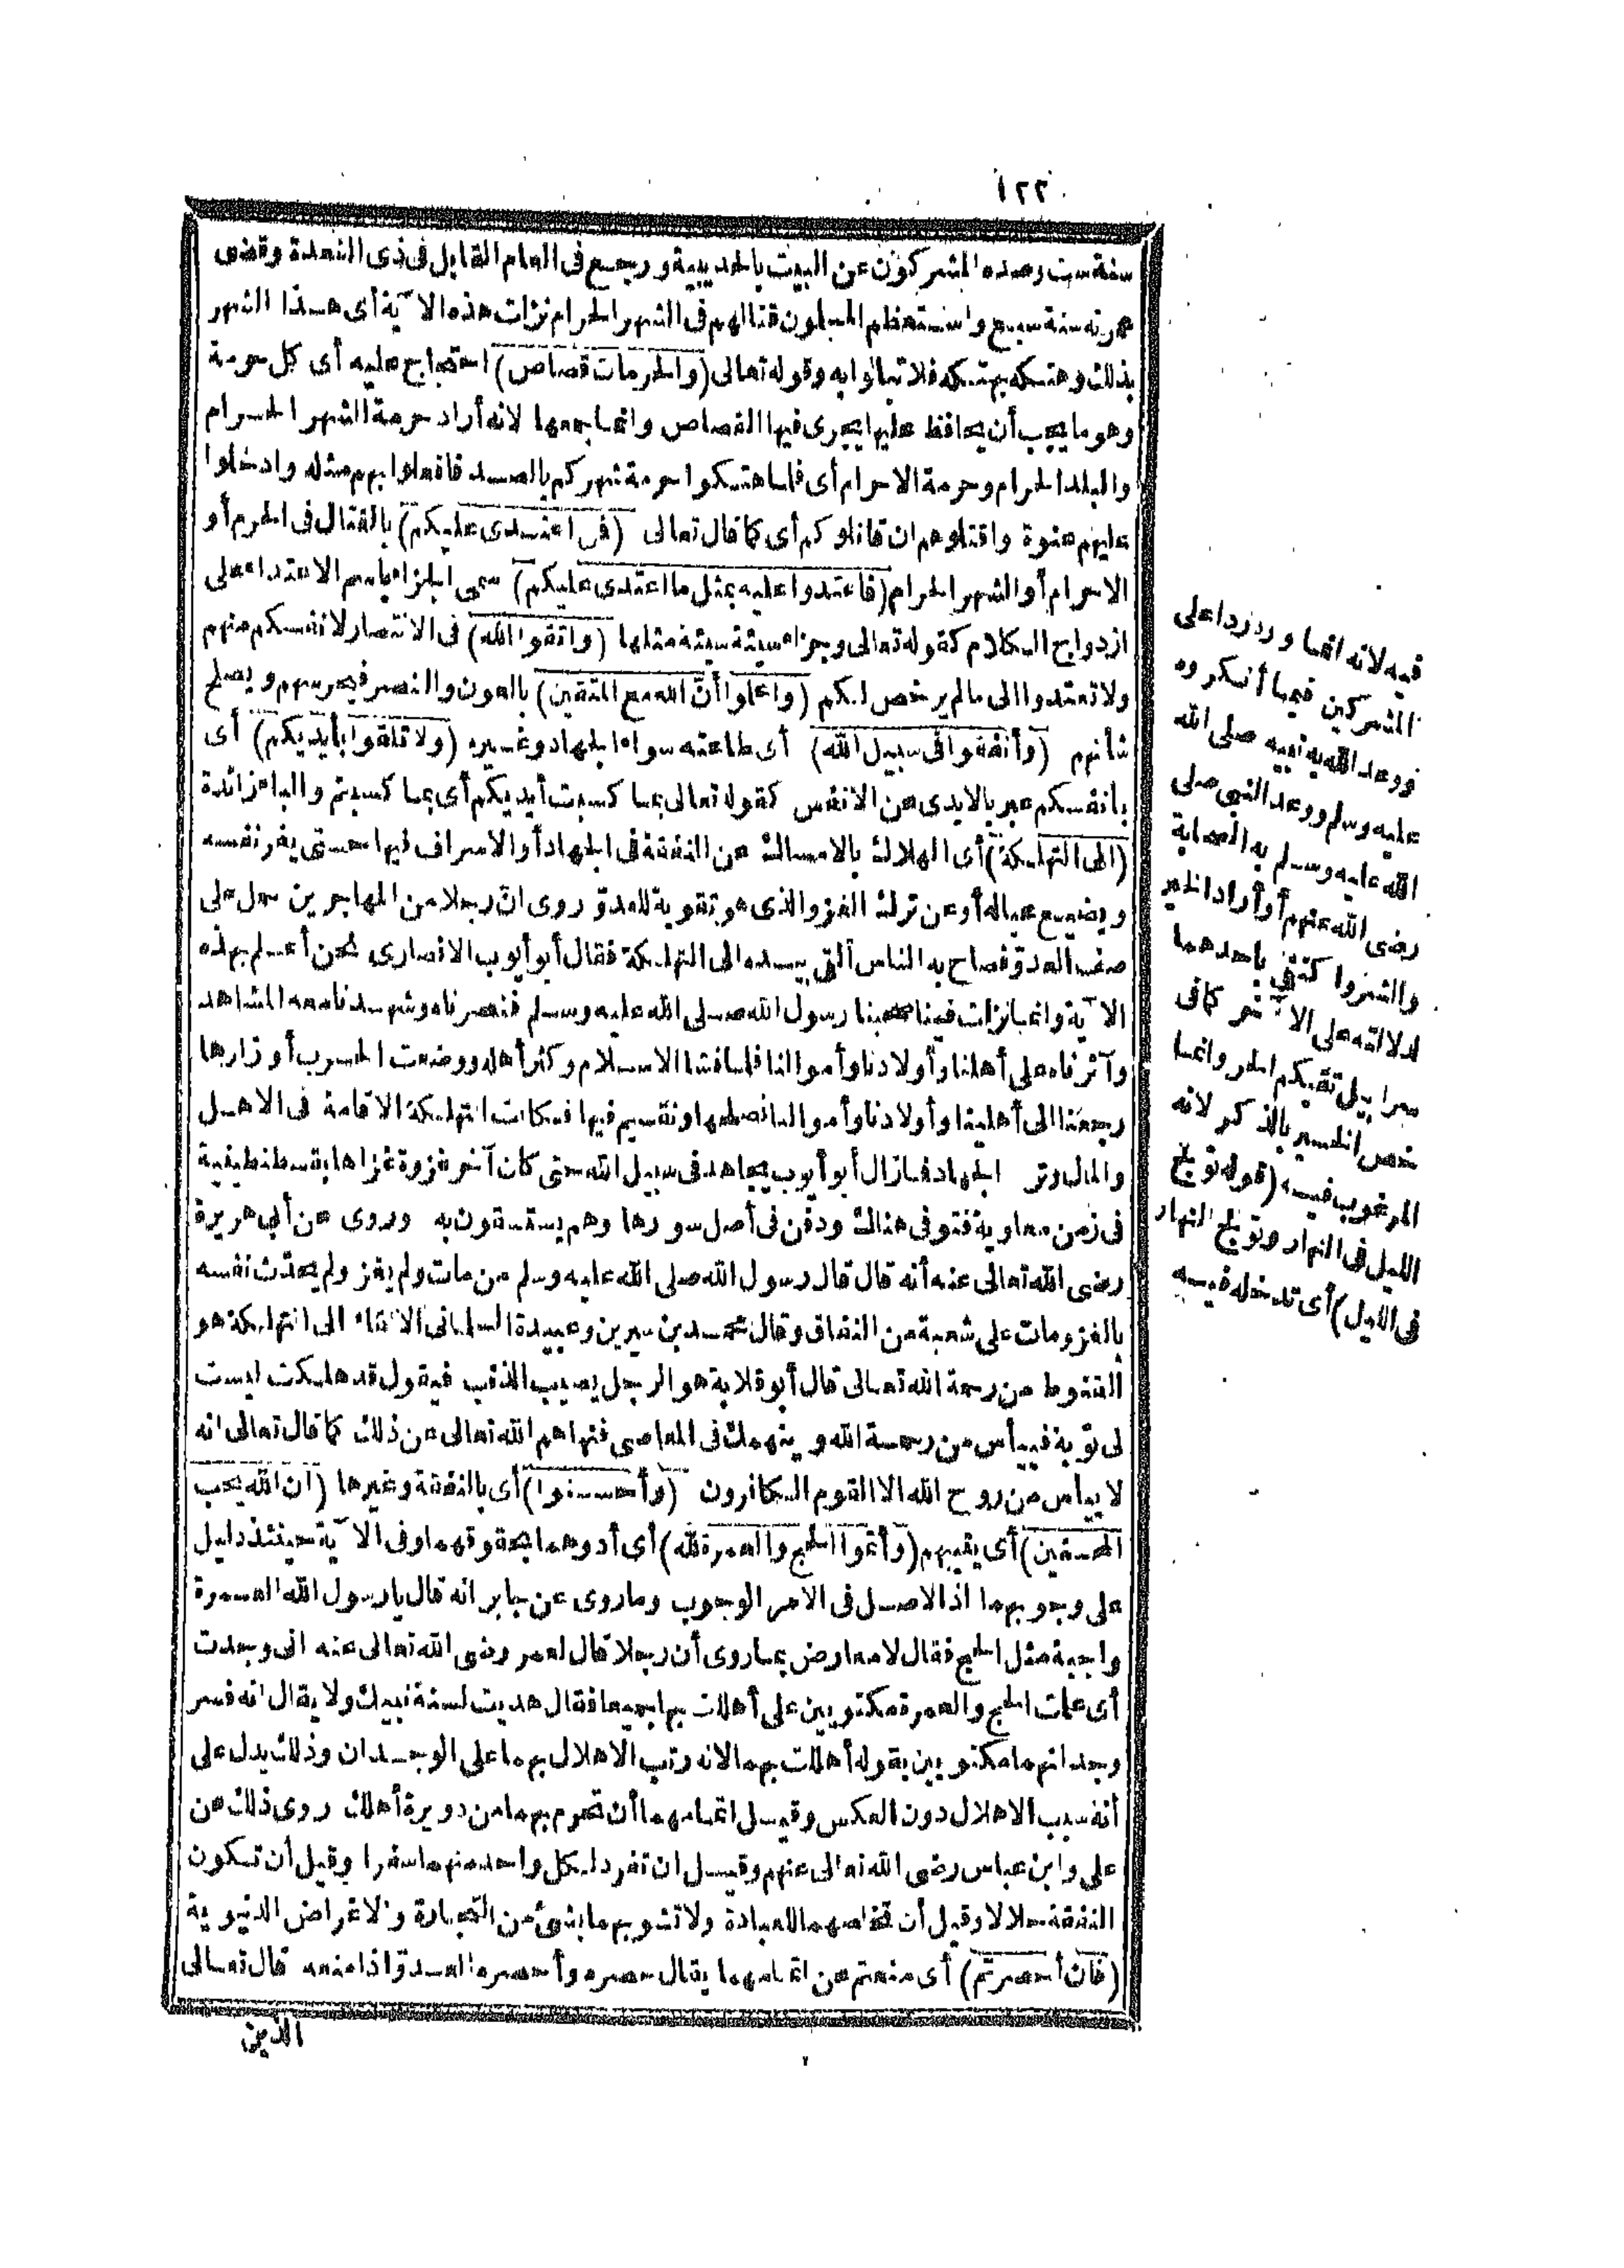 ١٢٢
سنة ست وصده المشركون عن البيت بالحديبية ورجع فى العام القابل فى ذى القعدة وقضى
عمرته سنة سبع واستعظم المسلون قتالهم فى الشهر الحرام نزلت هذه الآية أى هذا الشهر
بذلك وهتكه بهتكه فلا تبالوا به وقوله تعالى (والحرمات قصاص) احتجاج عليه أى كل حرمة
وهو ما يجب أن يحافظ عليها يجرى فيها القصاص وانما جمعها لانه أراد حرمة الشهر الحرام
والبلد الحرام وحرمة الاحرام أى فلما هتكوا حرمة شهركم بالصد فافعلوا بهم مثله وادخلوا
عليهم عنوة واقتلوهم ان قاتلوكم أى كما قال تعالى (فن اعتدى عليكم) بالقتال فى الحرم أو
الاحرام أو الشهر الحرام (فاعتدوا عليه بمثل ما اعتدى عليكم) سمى الجزاء باسم الاعتداء على
ازدواج الكلام كقوله تعالى وجزاء سيئة سيئة مثلها (واتقوا الله) فى الانتصار لانفسكم منهم
ولا تعتدوا الى ما لم يرخص لكم (واعلوا أنّ الله مع المتقين) بالعون والنصر فيحرسهم ويصلح
شأنهم (وأنفقوا فى سبيل الله) أى طاعته سواء الجهاد وغيره (ولا تلقوا بأيديكم) أى
بانفسكم عبر بالايدى عن الانفس كقوله تعالى بما كسبت أيديكم أى بما كسبتم والباء زائدة
(الى التهلكة) أى الهلاك بالامساك عن النفقة فى الجهاد أو الاسراف فيها حتى يفقر نفسه
ويضيع عياله أو عن ترك الغزو الذى هو تقوية للعدوّ روى انّ رجلا من المهاجرين حمل على
صف العدوّ فصاح به الناس ألقى بيده الى التهلكة فقال أبو أيوب الانصارى نحن أعلم بهذه
الآية وانما نزلت فينا صحبنا رسول الله صلى الله عليه وسلم فنصرناه وشهدنا معه المشاهد
وآثرناه على أهلنا وأولادنا وأموالنا فلما فشا الاسلام وكثر أهله ووضعت الحرب أوزارها
رجعنا الى أهلينا وأولادنا وأموالنا نصلحها ونقسيم فيها فكانت التهلكة الاقامة فى الاهل
والمال وترك الجهاد فما زال أبو أيوب يجاهد فى سبيل الله حتى كان آخر غزوة غزاها بقسطنطينية
فى زمن معاوية فتوفى هناك ودفن فى أصل سورها وهم يستسقون به وروى عن أبى هريرة
رضى الله تعالى عنه أنه قال قال رسول الله صلى الله عليه وسلم من مات ولم يغز ولم يحدّث نفسه
بالغزو مات على شعبة من النفاق وقال محمد بن سيرين وعبيدة السلمانى الالقاء الى التهلكة هو
القنوط من رحمة الله تعالى قال أبو قلابة هو الرجل يصيب الذنب فيقول قد هلكت ليست
لى توبة فييأس من رحمة الله وينهمك فى المعاصى فنهاهم الله تعالى عن ذلك كما قال تعالى انه
لا ييأس من روح الله الا القوم الكافرون (وأحسنوا) أى بالنفقة وغيرها (ان الله يحب
المحسنين) أى يثيبهم (وأتموا الحج والعمرة لله) أى أدوهما بحقوقهما وفى الآية حينئذ دليل
على وجوبهما اذ الاصل فى الامر الوجوب وما روى عن جابر انه قال يا رسول الله العمرة
واجبة مثل الحج فقال لا معارض بما روى أن رجلا قال لعمر رضى الله تعالى عنه انى وجدت
أى علمت الحج والعمرة مكتوبين على أهللت بهما جميعا فقال هديت لسنة نبيك ولا يقال انه فسر
وجدانهما مكتوبين بقوله أهللت بهما لانه رتب الاهلال بهما على الوجدان وذلك يدل على
أنه سبب الاهلال دون العكس وقيل اتمامهما أن تحرم بهما من دويرة أهلك روى ذلك عن
على وابن عباس رضى الله تعالى عنهم وقيل ان تفرد لكل واحد منهما سفرا وقيل أن تكون
النفقة حلالا وقيل أن تخلصهما للعبادة ولا تشوبهما بشئ من التجارة والاغراض الدنيوية
(فان أحصرتم) أى منعتم عن اتمامهما يقال حصره وأحصره العدوّ اذا منعه قال تعالى
الذين
فيه لانه انما ورد ردا على
المشركين فيما أنكروه
ووعد الله به نبيه صلى الله
عليه وسلم ووعد النبى صلى
الله عليه وسلم به الصحابة
رضى الله عنهم أو أراد الخير
والشر واكتفى باحدهما
لدلالته على الآخر كما فى
سرابيل تقيكم الحر وانما
خص الخير بالذكر لانه
المرغوب فيه (قوله تولج
الليل فى النهار وتولج النهار
فى الليل) أى تدخله فيه